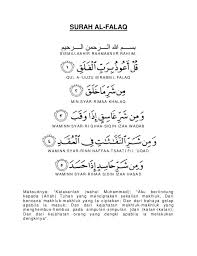 SURAH AL-FALAQ
بسم الله الرحمن الرحيم
BISMILLAAHIR RAHMAANIR RAHIIM
قُلْ أَعُوذُ بِرَبِّ الْفَلَقِ ①
QUL A-'UUZU BIRABBIL FALAQ
مِنْ شَرِّ مَا خَلَقَ ②
MIN SYAR RIMAA KHALAQ
وَمِنْ شَرِّ غَاسِقٍ إِذَا وَقَبَ ③
WAMINN SYAR RI GHAA SIQIN IZAA WAQAB
وَمِنْ شَرِّ النَّفَّاثَاتِ فِي الْعُقَدِ ④
WAMINN SYAR RINN NAFFAA TSAATI FIL 'UQAD
وَمِنْ شَرِّ حَاسِدٍ إِذَا حَسَدَ ⑤
WAMINN SYAR RI HAA SIDIN IZAA HASAD
Maksudnya: "Katakanlah (wahai Muhammad); "Aku berlindung
kepada (Allah) Tuhan yang menciptakan sekalian makhluk, Dari
bencana makhluk-makhluk yang Ia ciptakan; Dan dari bahaya gelap
apabila ia masuk; Dan dari kejahatan makhluk-makhluk yang
menghembus-hembus pada simpulan-simpulan (dan ikatan-ikatan);
Dan dari kejahatan orang yang dengki apabila ia melakukan
dengkinya".